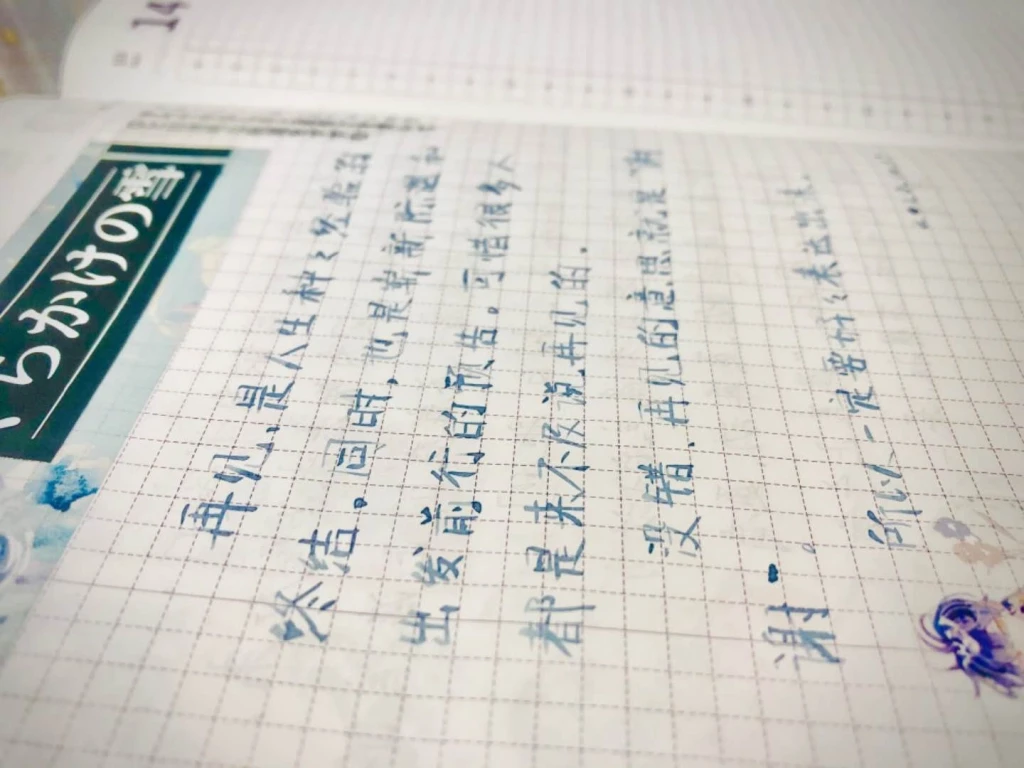 らかけの雪
14
再见，是人生种々经验的
终结。同时，也是崭新際遇和
出发前行的预告。可惜很多人
都是来不及说再见的.
没错、再见的意思就是"谢
谢"。
所以一定要付々表达出来.